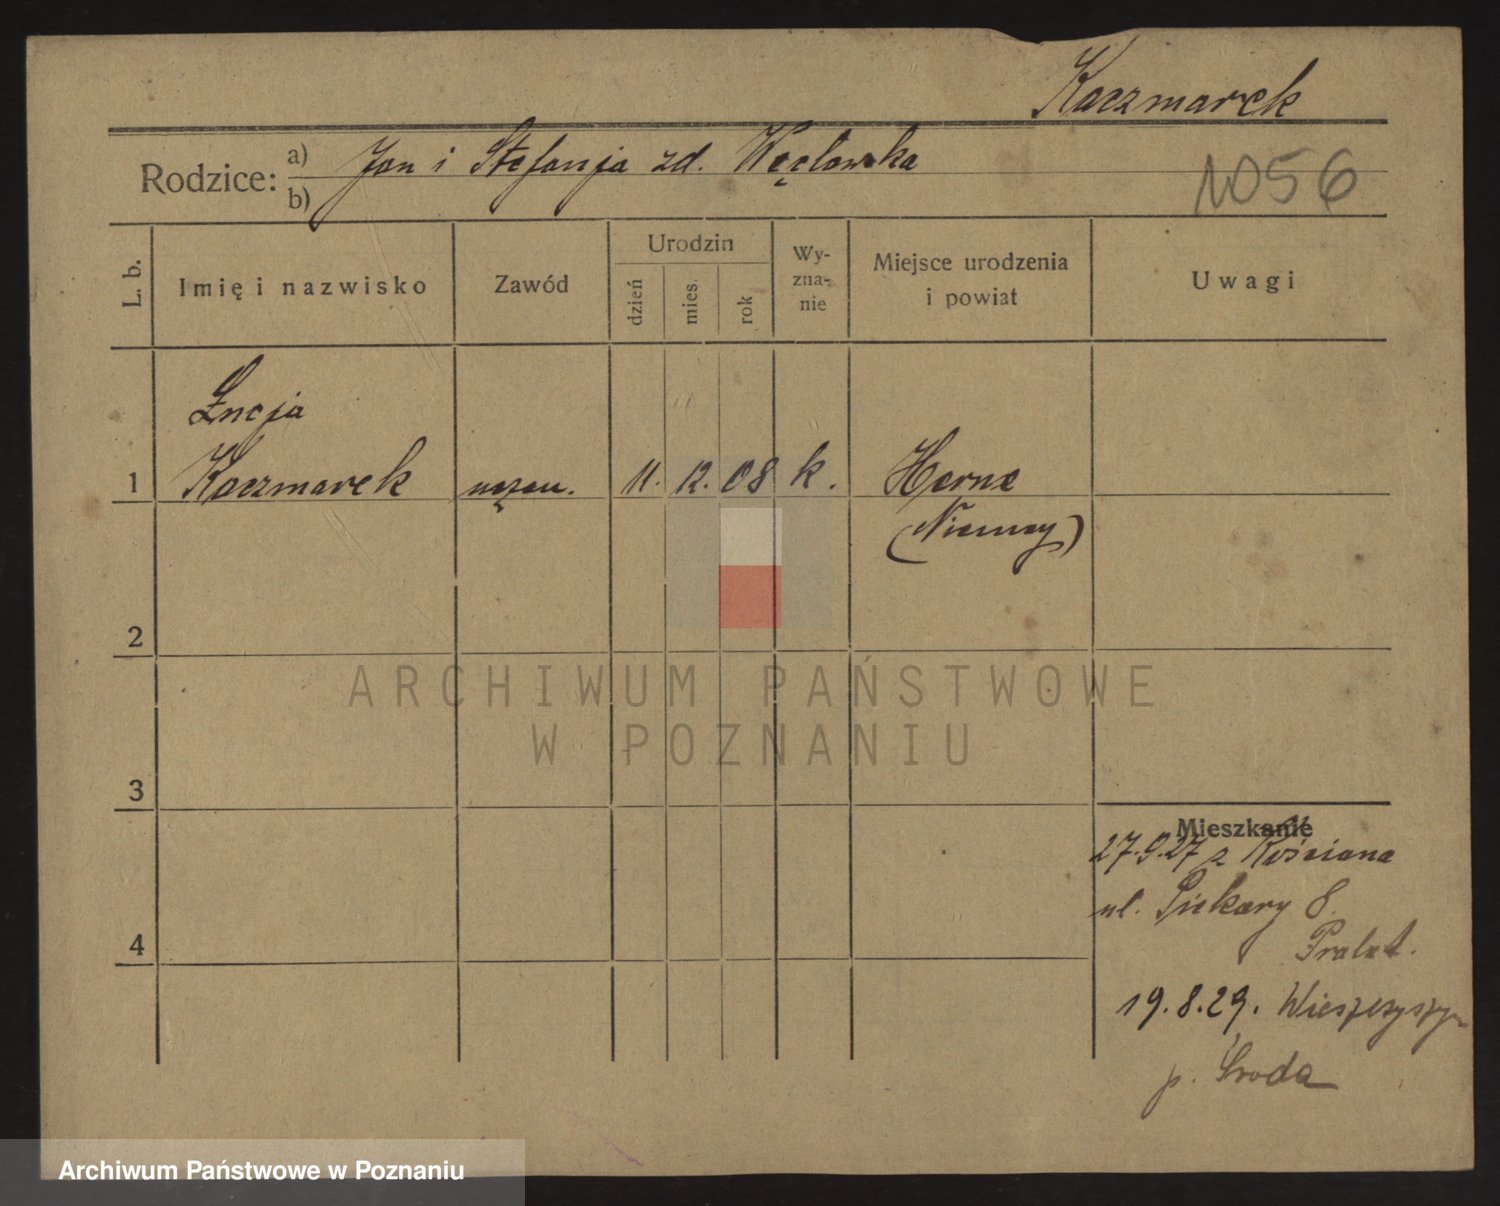 Kaczmarek
Rodzice: a) Jan i Stefanja zd. Węcławska
b)
1056
L. b.
Imię i nazwisko
Zawód
Urodzin
dzień
mies.
rok
Wy-
zna-
nie
Miejsce urodzenia
i powiat
Uwagi
Łucja
1 Kaczmarek uczen. 11. 12. 08 k. Herne
(Niemcy)
2
3
4
Mieszkanie
27.9.27 z Kościana
ul. Piekary 8.
Pralat.
19.8.29.
p. Środa
ARCHIWUM PAŃSTWOWE
W POZNANIU
Archiwum Państwowe w Poznaniu